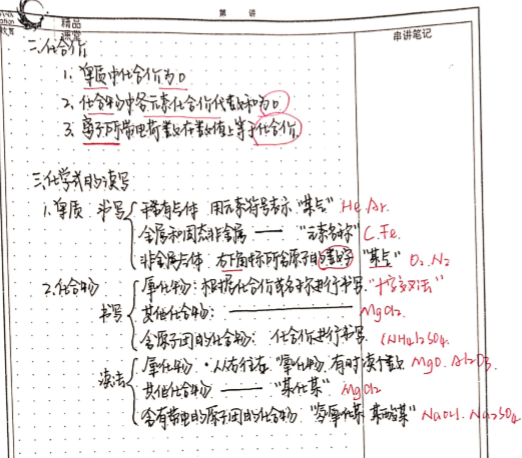 精品
课堂
第 讲
串讲笔记
二.化合价
1. 单质中化合价为0
2. 化合物中各元素化合价代数和为0
3. 离子所带电荷数在数值上等于化合价.
三.化学式的读写
1. 单质 书写 稀有气体 用元素符号表示 "某气" He Ar.
金属和固态非金属 —— "元素名称" C. Fe.
非金属气体 右下角标所含原子的数字 "某气" O₂. N₂
2. 化合物
书写 氧化物: 根据化合价或名称进行书写. "十字交叉法"
其他化合物: —— MgCl₂.
含原子团的化合物: 化合价进行书写. (NH₄)₂SO₄.
读法 氧化物 · 从右往左 "氧化物" 有时读个数 MgO. Al₂O₃.
其他化合物 —— "某化某" MgCl₂
含有带电的原子团的化合物 "氢氧化某 某酸某" NaOH. Na₂SO₄